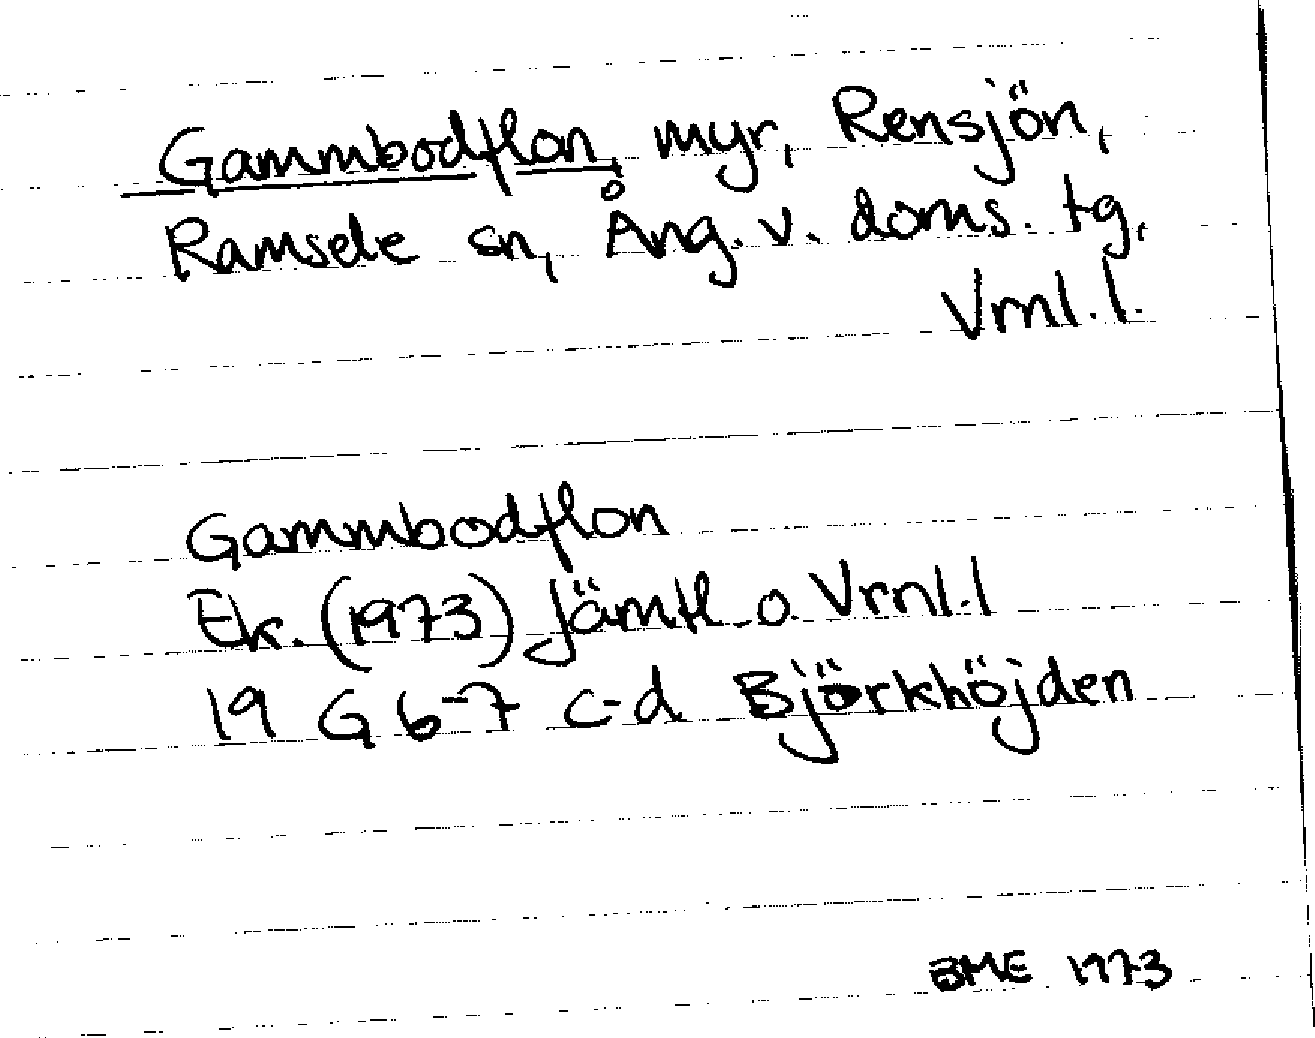 Gammbodflon, myr, Rensjön,
Ramsele sn, Ång. v. doms. tg,
Vrnl. l.
Gammbodflon
Ek. (1973) Jämtl o. Vrnl. l
19 G 6-7 c-d Björkhöjden
BME 1973